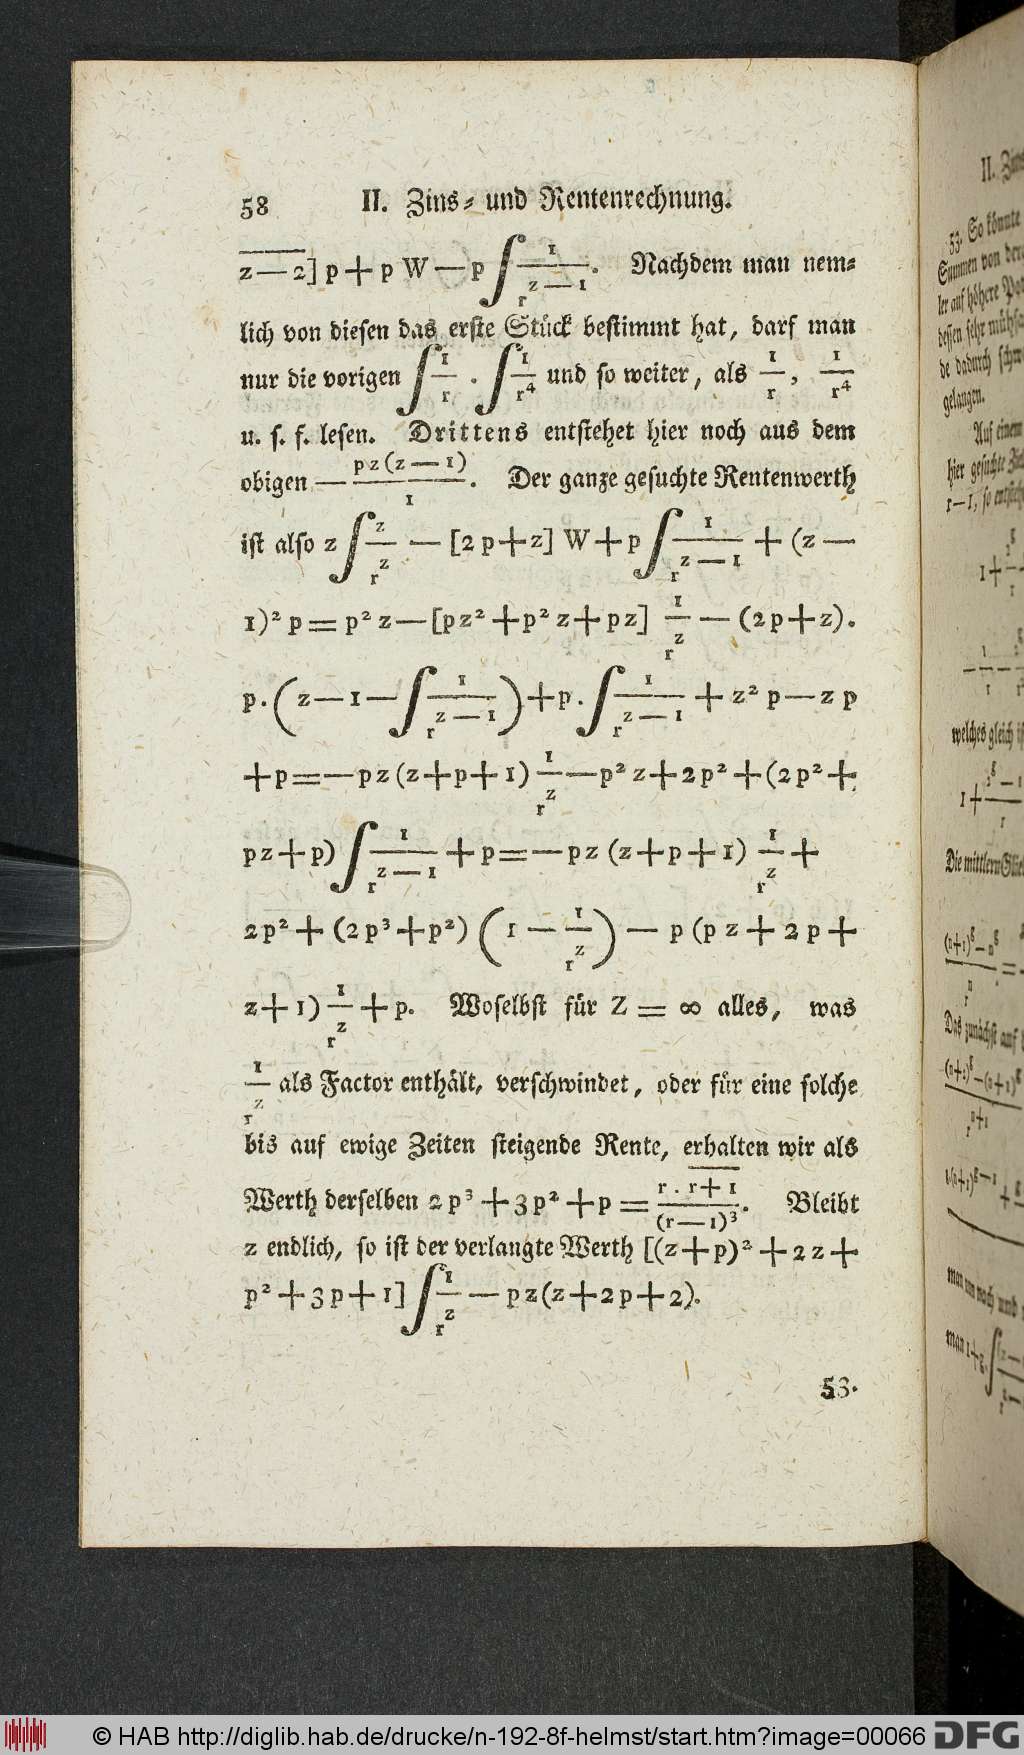 58 II. Zins- und Rentenrechnung.
z — 2] p + p W — p ∫ 1/r^(z — 1). Nachdem man nem-
lich von diesen das erste Stück bestimmt hat, darf man
nur die vorigen ∫ 1/r . ∫ 1/r⁴ und so weiter, als 1/r, 1/r⁴
u. s. f. lesen. Drittens entstehet hier noch aus dem
obigen — pz(z — 1)/1. Der ganze gesuchte Rentenwerth
ist also z ∫ z/r^z — [2p+z] W + p ∫ 1/r^(z — 1) + (z —
1)² p = p² z — [pz² + p² z + pz] 1/r^z — (2p+z).
p. (z — 1 — ∫ 1/r^(z — 1)) + p. ∫ 1/r^(z — 1) + z² p — z p
+ p = — pz (z+p+1) 1/r^z — p² z + 2p² + (2p² +
pz + p) ∫ 1/r^(z — 1) + p = — pz (z+p+1) 1/r^z +
2p² + (2p³ + p²) (1 — 1/r^z) — p (pz + 2p +
z + 1) 1/r^z + p. Woselbst für Z = ∞ alles, was
1/r^z als Factor enthält, verschwindet, oder für eine solche
bis auf ewige Zeiten steigende Rente, erhalten wir als
Werth derselben 2p³ + 3p² + p = r . r+1/(r — 1)³. Bleibt
z endlich, so ist der verlangte Werth [(z+p)² + 2z +
p² + 3p + 1] ∫ 1/r^z — pz(z+2p+2).
53.
II. Zins
53. So könnte
Summen von
ler auf höhere
dessen sehr
de dadurch
gelangen.
Auf einem
hier gesuchte
r — 1, so
welches gleich
Die mittlern
Das zunächst auf
man nun noch und
man
© HAB http://diglib.hab.de/drucke/n-192-8f-helmst/start.htm?image=00066 DFG